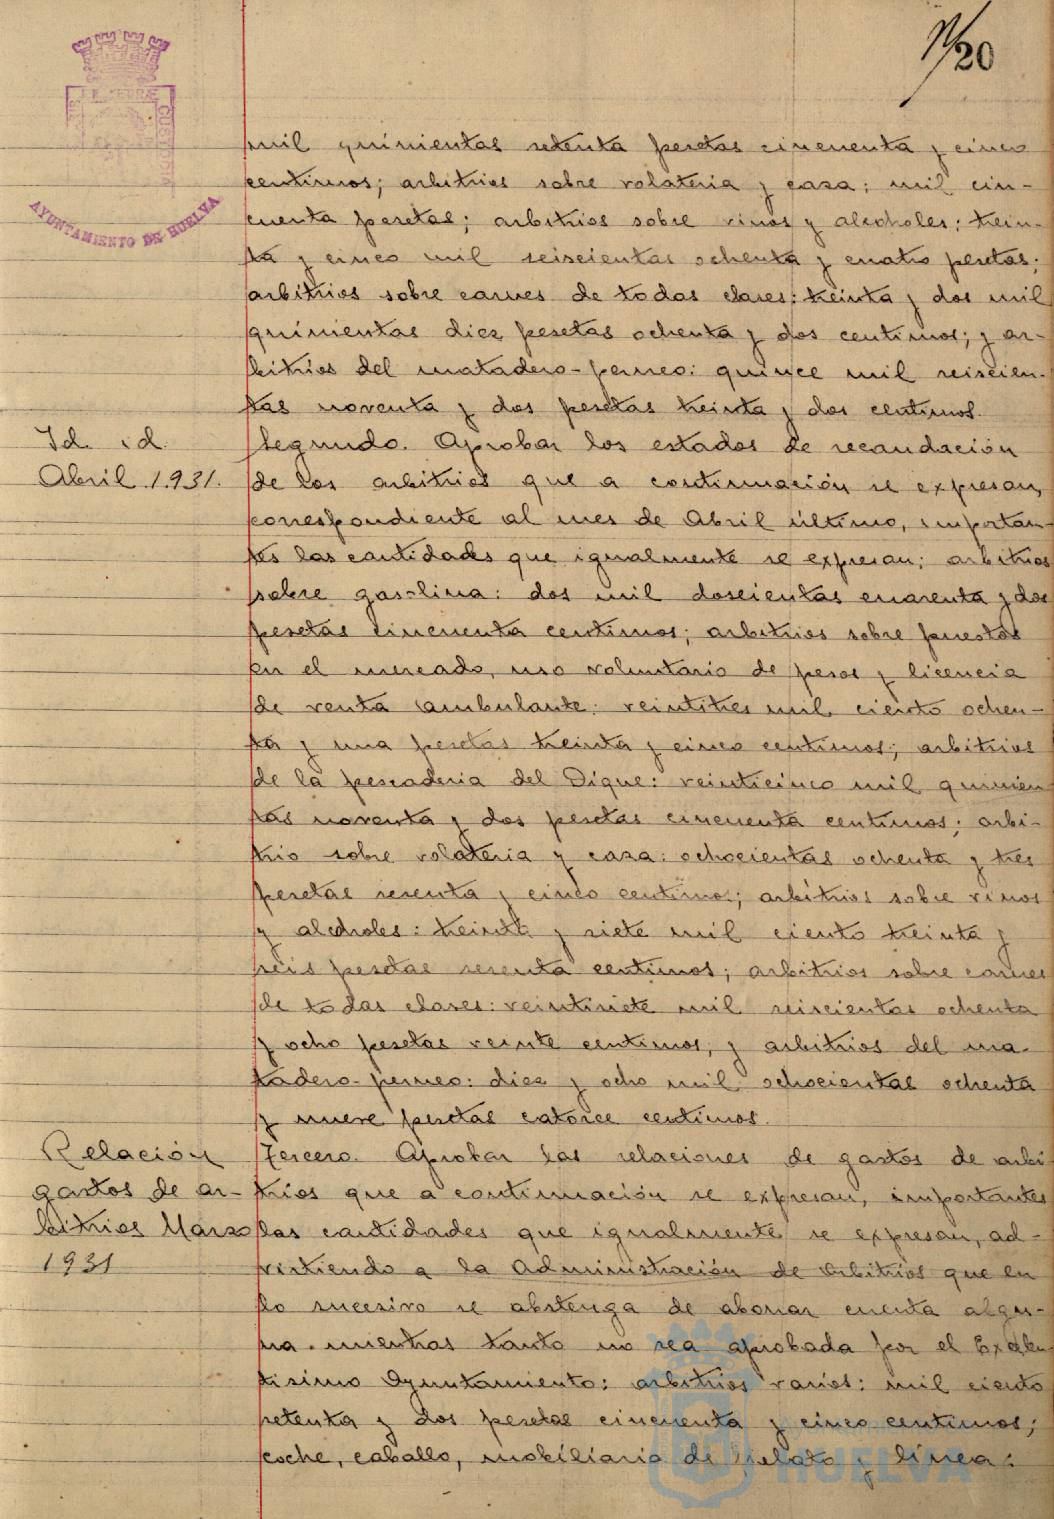 20
AYUNTAMIENTO DE HUELVA
mil quinientas setenta pesetas cincuenta y cinco
centimos; arbitrios sobre volateria y caza: mil cin-
cuenta pesetas; arbitrios sobre vinos y alcoholes: trein-
ta y cinco mil seiscientas ochenta y cuatro pesetas;
arbitrios sobre carnes de todas clases: treinta y dos mil
quinientas diez pesetas ochenta y dos centimos; y ar-
bitrios del matadero-perneo: quince mil seiscien-
tas noventa y dos pesetas treinta y dos centimos.
Id. id.
Abril 1931.
Segundo. Aprobar los estados de recaudación
de los arbitrios que a continuación se expresan,
correspondiente al mes de Abril último, importan-
tes las cantidades que igualmente se expresan; arbitrios
sobre gasolina: dos mil doscientas cuarenta y dos
pesetas cincuenta centimos; arbitrios sobre puestos
en el mercado, uso voluntario de pesos y licencia
de venta ambulante: veintitres mil ciento ochen-
ta y una pesetas treinta y cinco centimos; arbitrios
de la pescaderia del Dique: veinticinco mil quinien
tas noventa y dos pesetas cincuenta centimos; arbi-
trio sobre volateria y caza: ochocientas ochenta y tres
pesetas sesenta y cinco centimos; arbitrios sobre vinos
y alcholes: treinta y siete mil ciento treinta y
seis pesetas sesenta centimos; arbitrios sobre carnes
de todas clases: veintisiete mil seiscientas ochenta
y ocho pesetas veinte centimos; y arbitrios del ma-
tadero-perneo: diez y ocho mil ochocientas ochenta
y nueve pesetas catorce centimos.
Relación
gastos de ar-
bitrios Marzo
1931
Tercero. Aprobar las relaciones de gastos de arbi
trios que a continuación se expresan, importantes
las cantidades que igualmente se expresan, ad-
virtiendo a la Administración de Arbitrios que en
lo sucesivo se abstenga de abonar cuenta algu-
na mientras tanto no sea aprobada por el Excelen
tisimo Ayuntamiento: arbitrios varios: mil ciento
setenta y dos pesetas cincuenta y cinco centimos;
coche, caballo, mobiliario de fielato y línea:
HUELVA